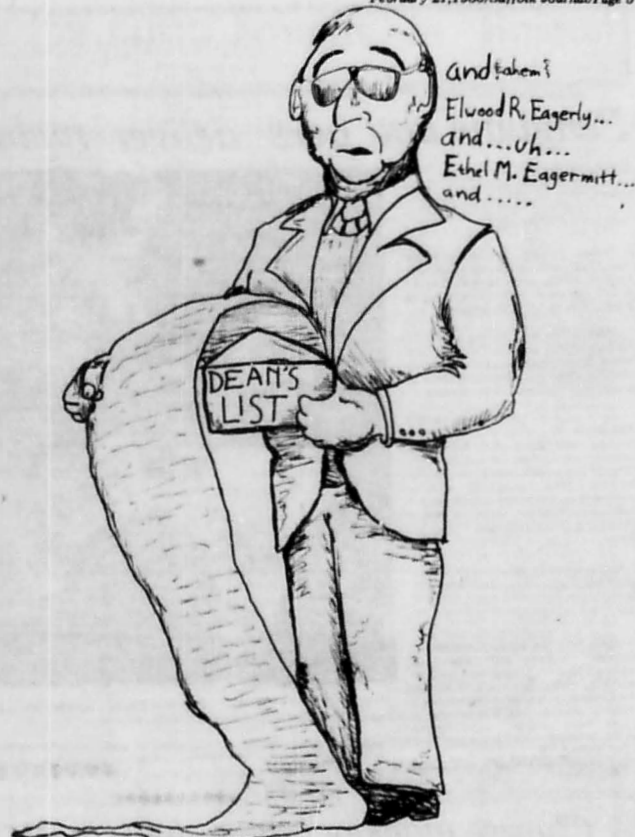 and {ahem}
Elwood R. Eagerly...
and...uh...
Ethel M. Eagermitt...
and.....
DEAN'S
LIST